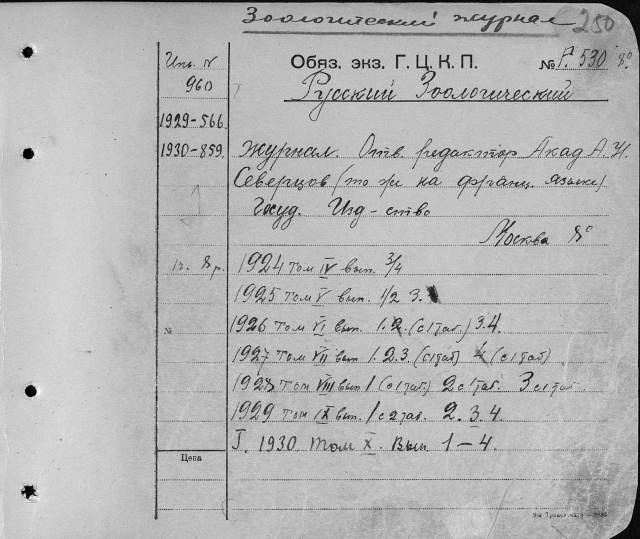 Зоологический журнал
250
Инв. №
960
Обяз. экз. Г. Ц. К. П.
№ Р. 530 8°
Русский Зоологический
1929-566.
1930-859.
журнал. Отв. редактор Акад А. Н.
Северцов (то же на франц. языке)
Госуд. Изд-ство
Москва 8°
1924 том IV вып. 3/4
1925 том V вып. 1/2 3.
№
1926 том VI вып. 1.2. (с 1 таб.) 3.4.
1927 том VII вып 1. 2. 3. (с 1 таб) 4 (с 1 таб)
1928 том VIII вып 1 (с 1 таб.) 2 с 1 таб. 3 с 1 таб.
1929 том IX вып. 1 с 2 таб. 2. 3. 4
I. 1930. Том X. Вып. 1-4.
Цена